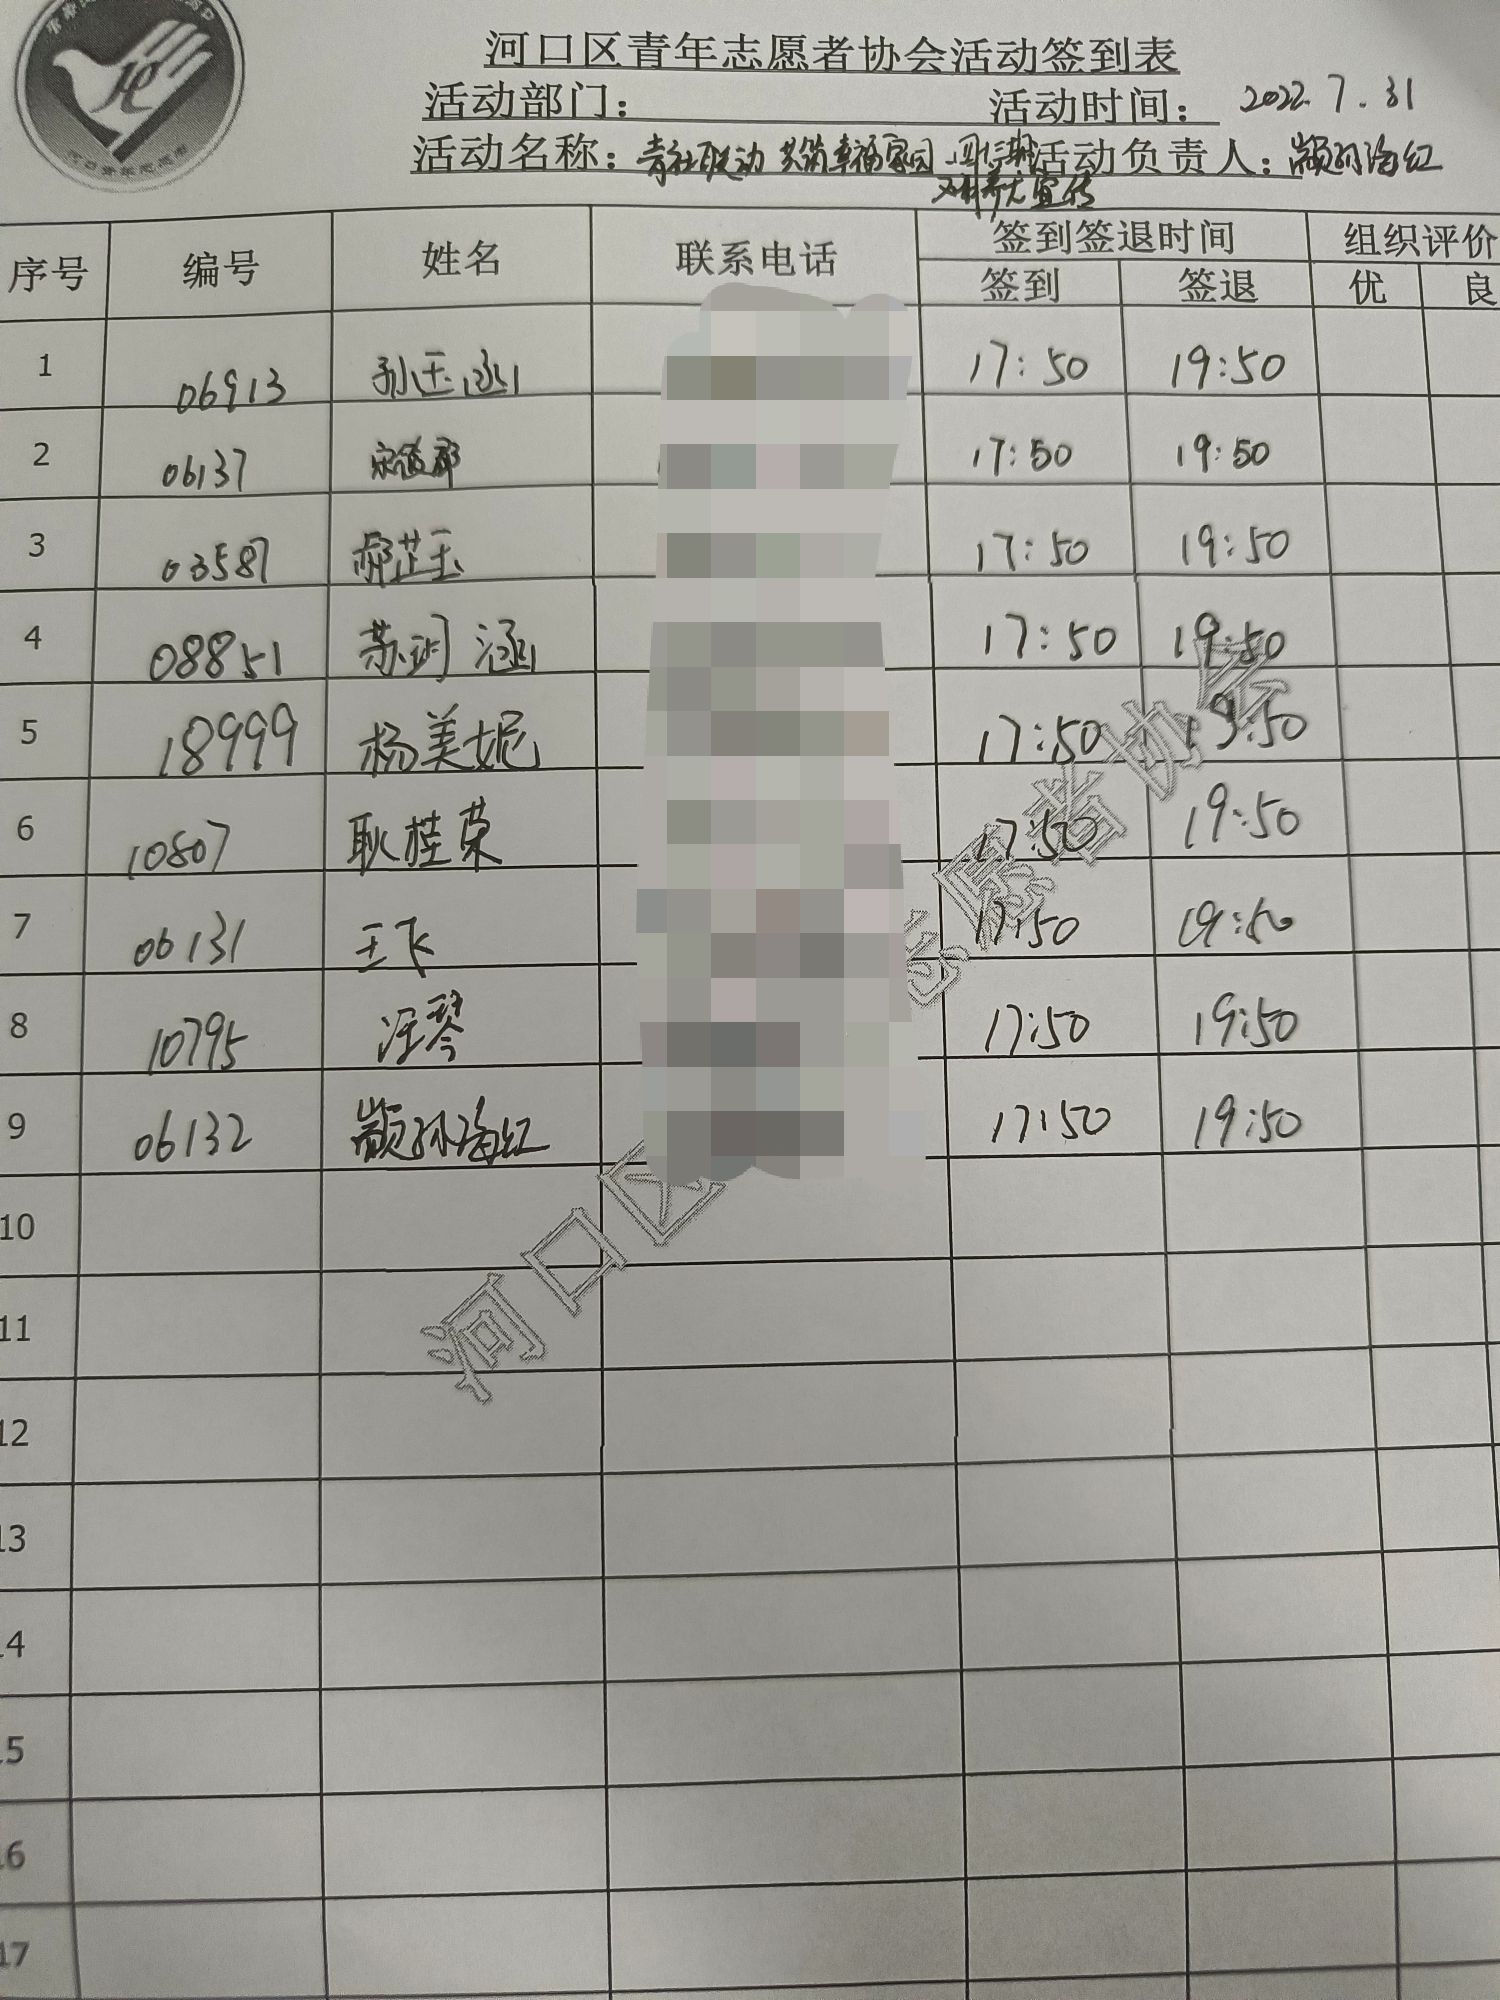 河口区青年志愿者协会活动签到表
活动部门： 活动时间： 2022.7.31
活动名称：青社联动 共筑幸福家园 活动负责人：颛孙海红
宣传
序号 编号 姓名 联系电话 签到签退时间 组织评价
签到 签退 优 良
1 06913 孙玉涵 17:50 19:50
2 06137 17:50 19:50
3 03587 郝芷玉 17:50 19:50
4 08851 苏玥涵 17:50 19:50
5 18999 杨美妮 17:50 19:50
6 10807 耿桂荣 17:50 19:50
7 06131 王飞 17:50 19:50
8 10795 汪琴 17:50 19:50
9 06132 颛孙海红 17:50 19:50
10
11
12
13
14
15
16
17
河口区 志愿者协会